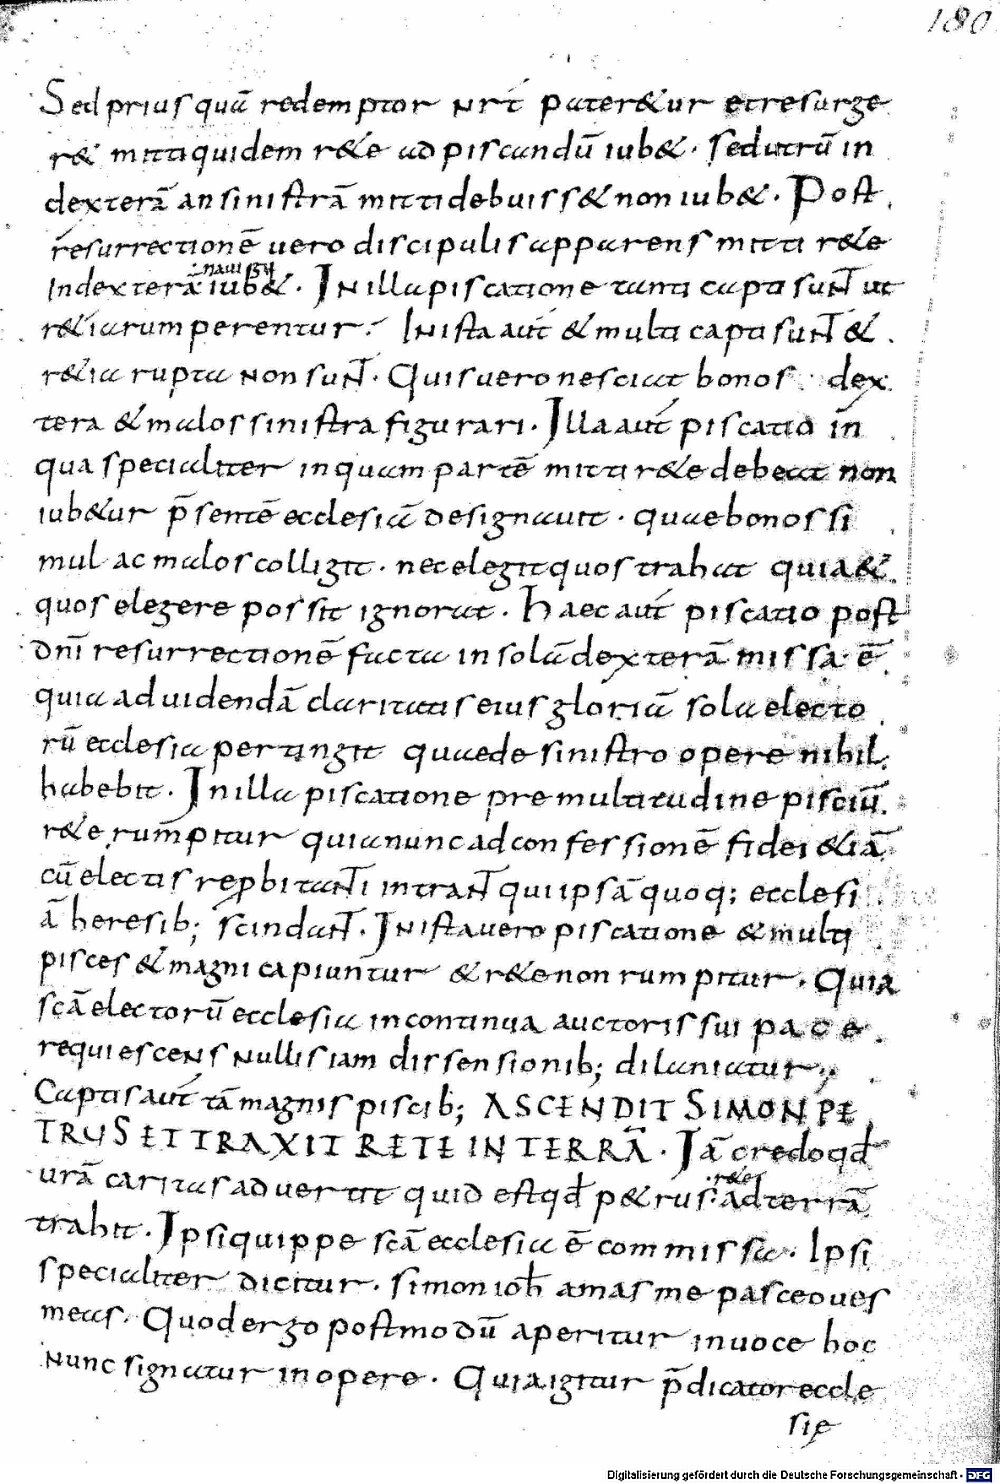 180
Sed prius quā redemptor nr̄i pater&ur et resurge
r& mitti quidem r&e ad piscandū iub&. sed utrū in
dexterā an sinistrā mitti debuiss& non iub&. Post
resurrectionē uero discipulis apparens mitti r&e
.nauigii
In dexterā iub&. In illa piscatione tanti capti sunt ut
r&ia rumperentur. In ista aut̄ & multi capti sunt &
r&ia rupta non sunt. Quis uero nesciat bonos dex
tera & malos sinistra figurari. Illa aut̄ piscatio in
qua specialiter in quam partē mitti r&e debeat non
iub&ur p̄sentē ecclesiā designauit. quae bonos si
mul ac malos colligit. nec elegit quos trahat quia &
quos elegere possit ignorat. Haec aut̄ piscatio post
dn̄i resurrectionē facta in solā dexterā missa ē
quia ad uidendā claritatis eius gloriā sola electo
rū ecclesia pertingit quae de sinistro opere nihil
habebit. In illa piscatione pre multitudine pisciū
r&e rumpitur quia nunc ad confessionē fidei &iā
cū electis rep̱bi tanti intrant qui ipsā quoq; ecclesi
ā heresib; scindant. In ista uero piscatione & multi
pisces & magni capiuntur & r&e non rumpitur. Quia
scā electorū ecclesia in continua auctoris sui pace
requiescens nullis iam dissensionib; dilaniatur;
Captis aut̄ tā magnis piscib; ASCENDIT SIMON PE
TRUS ET TRAXIT RETE IN TERRĀ. Iā credo qđ
r&e
urā caritas aduertit quid est qđ p&rus ad terrā
trahit. Ipsi quippe scā ecclesia ē commissa. Ipsi
specialiter dicitur. simon ioh̄ amas me pasce oues
meas. Quod ergo postmodū aperitur in uoce hoc
nunc signatur in opere. Quia igitur p̄dicator eccle
sie
Digitalisierung gefördert durch die Deutsche Forschungsgemeinschaft - DFG